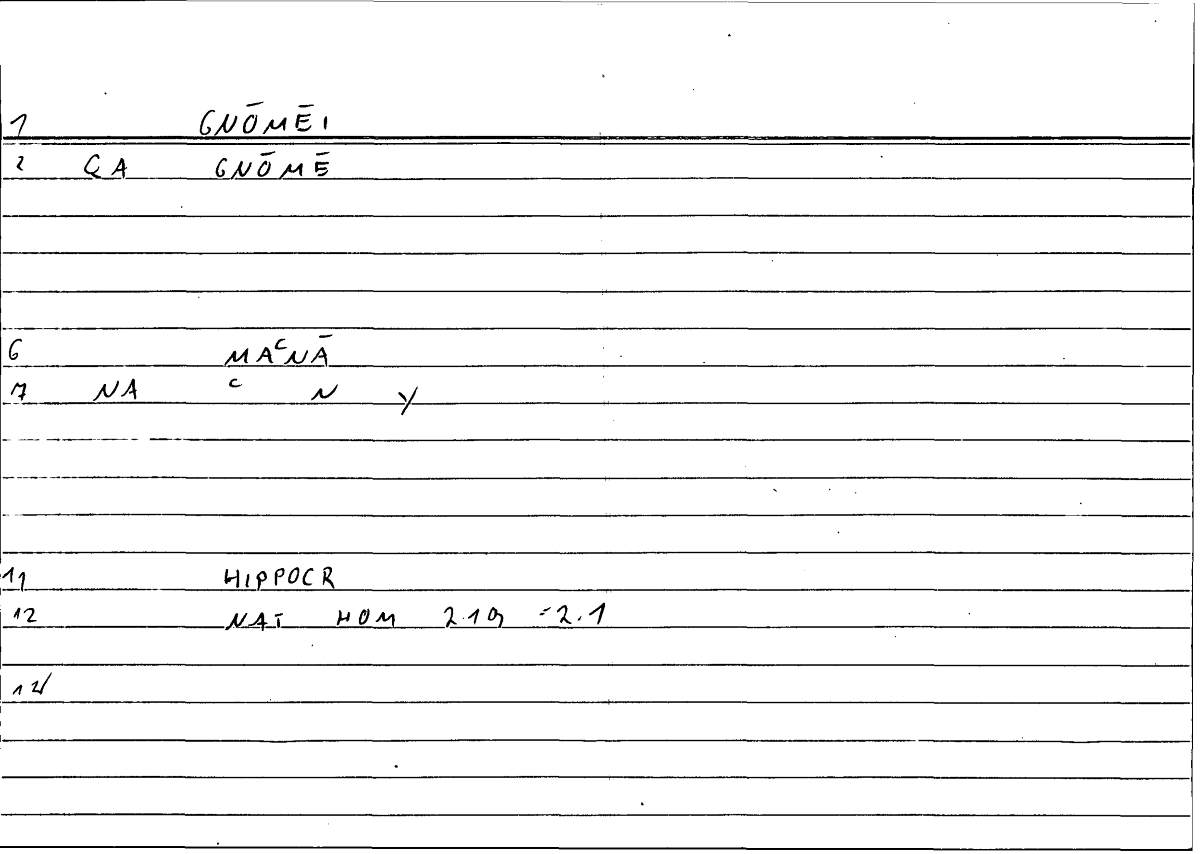 1 GNŌMĒI
2 QA GNŌMĒ
6 MAᶜNĀ
7 NA ᶜ N Y
11 HIPPOCR
12 NAT HOM 2.19 =2.1
12/